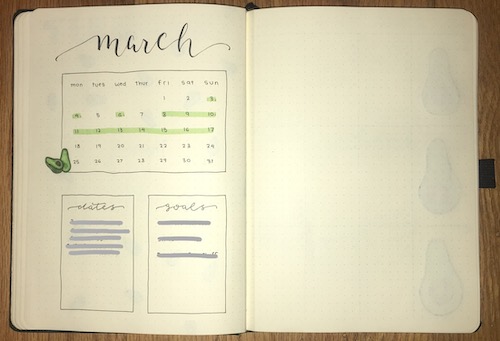 march
mon tues wed thur fri sat sun
1 2 3
4 5 6 7 8 9 10
11 12 13 14 15 16 17
18 19 20 21 22 23 24
25 26 27 28 29 30 31
dates
goals